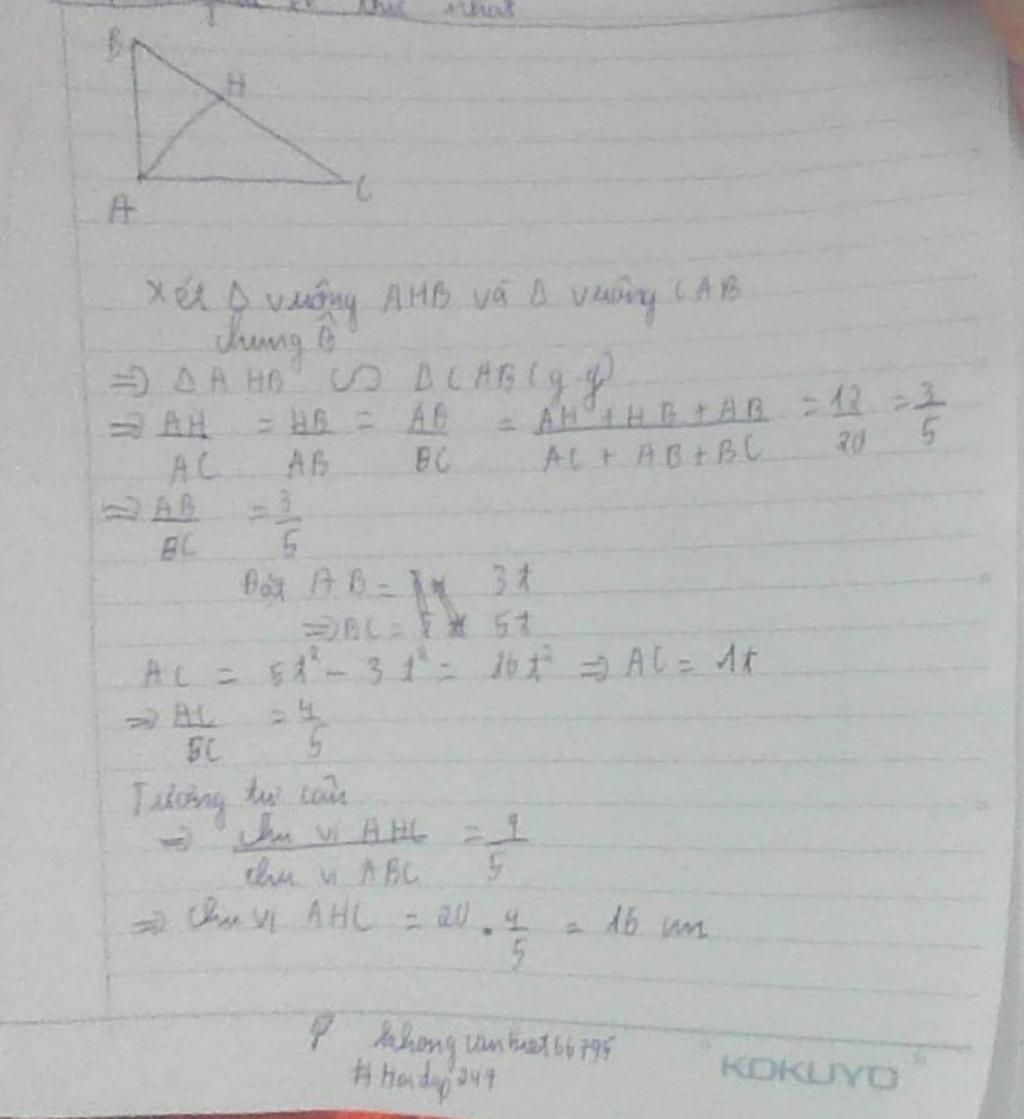 thứ nhất
B
H
A
C
Xét Δ vuông AHB và Δ vuông CAB
chung B̂
=> Δ AHB ∽ Δ CAB (g-g)
=> AH/AC = HB/AB = AB/BC = AH + HB + AB/AC + AB + BC = 12/20 = 3/5
=> AB/BC = 3/5
Đặt AB = 3t
=> BC = 5t
AC = 5t² - 3t² = 16t² => AC = 4t
=> AC/BC = 4/5
Tương tự câu
=> chu vi AHC/chu vi ABC = 4/5
=> Chu vi AHC = 20 . 4/5 = 16 cm
#Hoidap247
KOKUYO